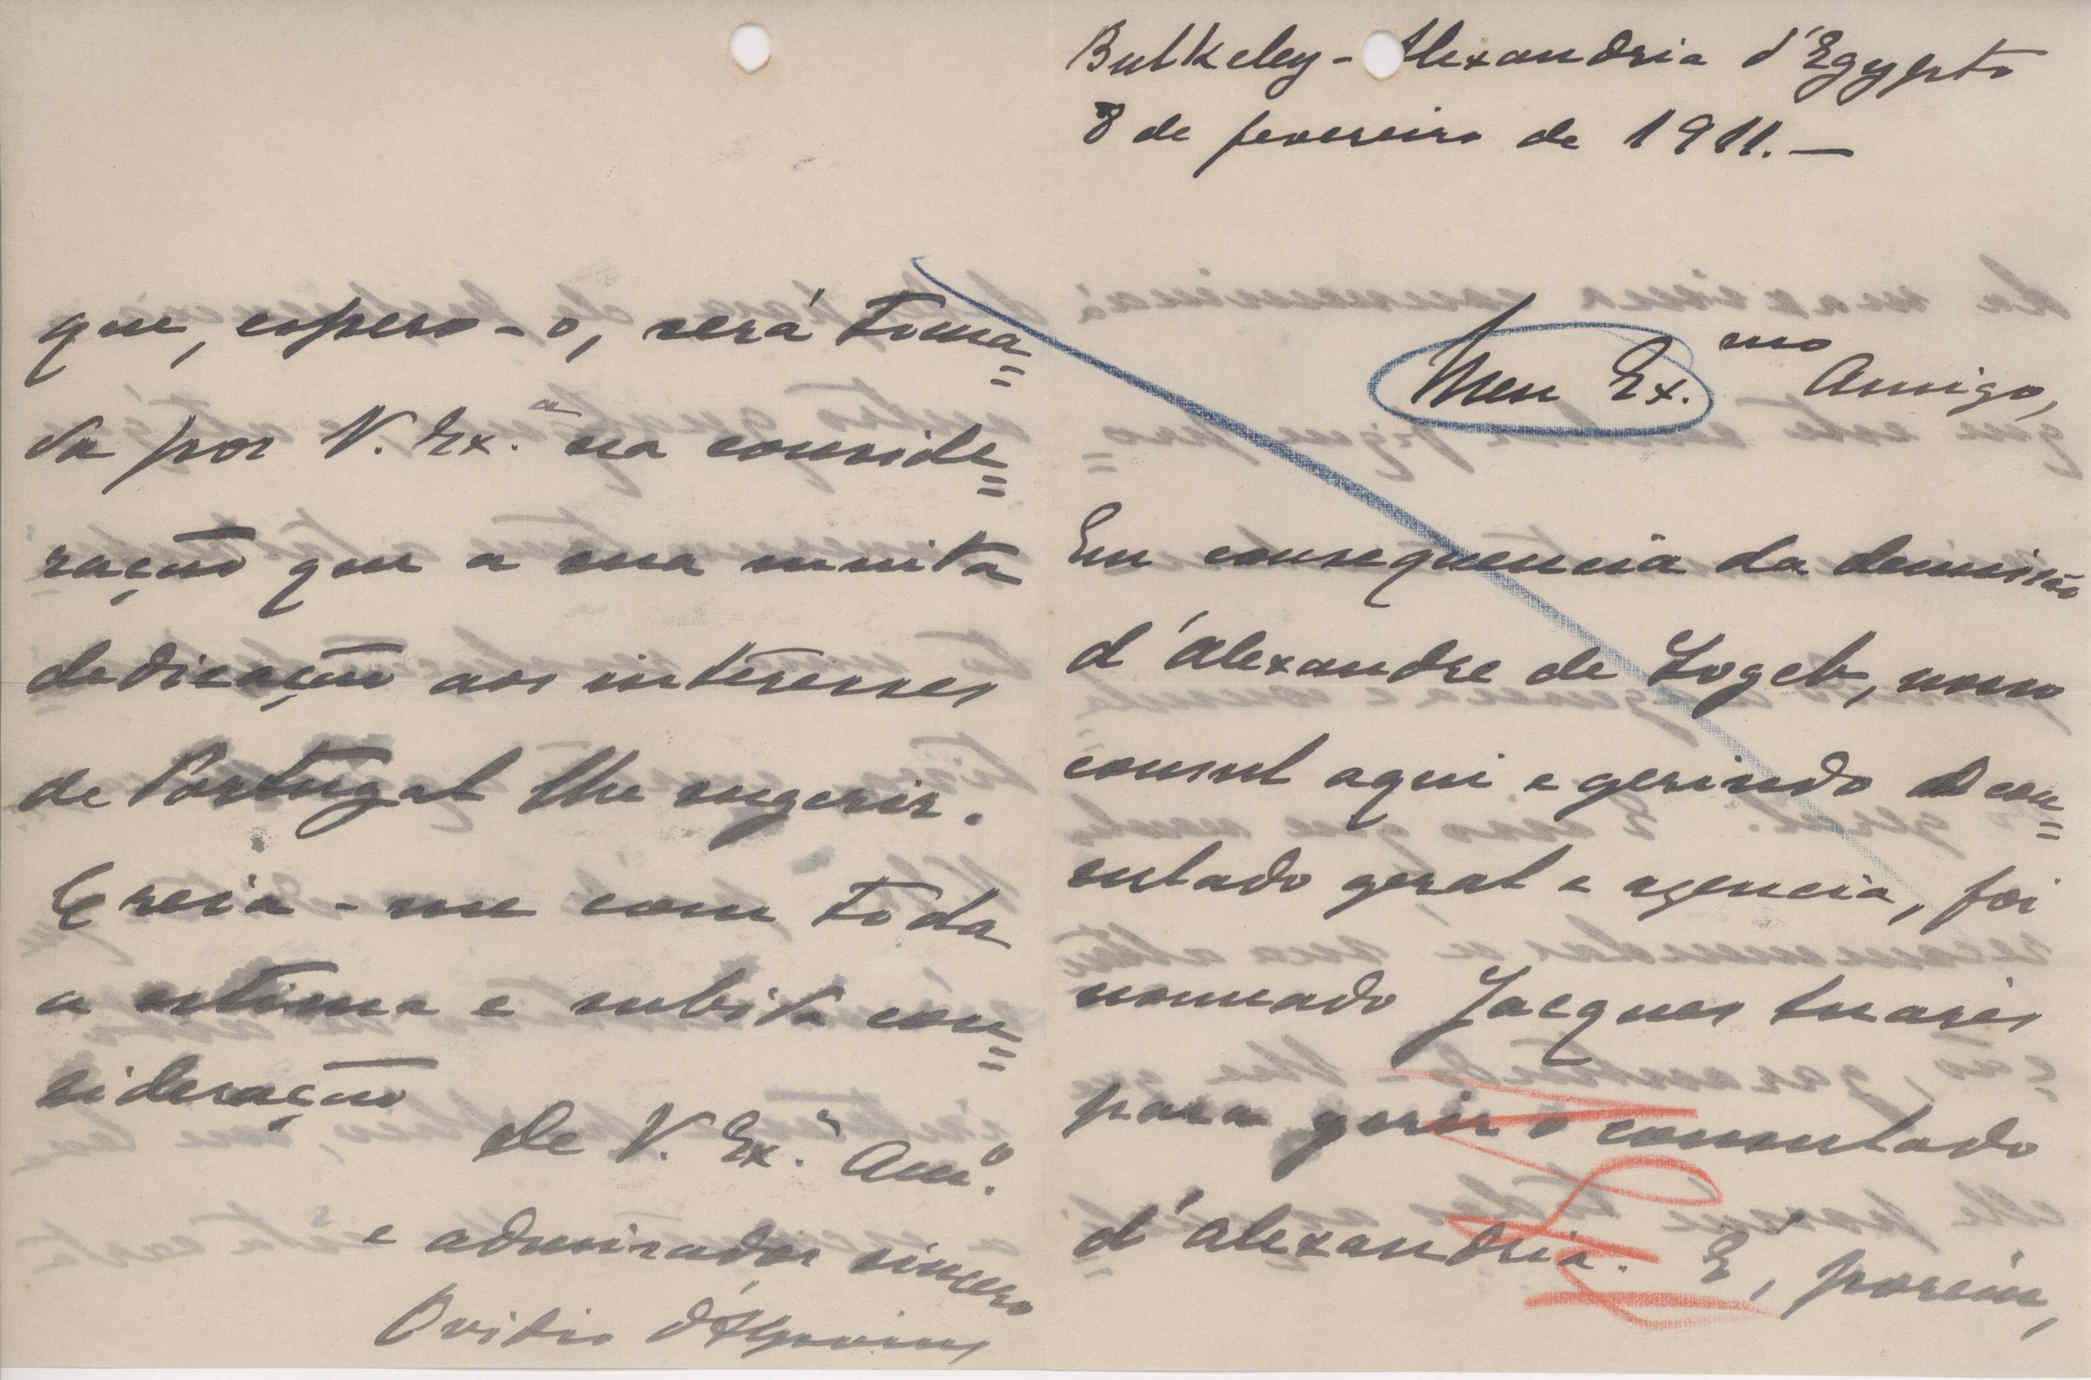 Bulkeley - Alexandria d'Egypto
8 de fevereiro de 1911. —
Meu Ex.mo Amigo,
Em consequencia da demissão
d'Alexandre de Zogeb, nosso
consul aqui e gerindo o con=
sulado geral e agencia, foi
nomeado Jacques Suarès
para gerir o consulado
d'Alexandria. É, porém,
que, espero-o, será toma=
da por V. Ex.a na conside=
ração que a sua muita
dedicação aos interesses
de Portugal lhe sugerir.
Creia-me com toda
a estima e subida con=
sideração
de V. Ex.a Am.o
e admirador sincero
Ovidio d'Alpoim